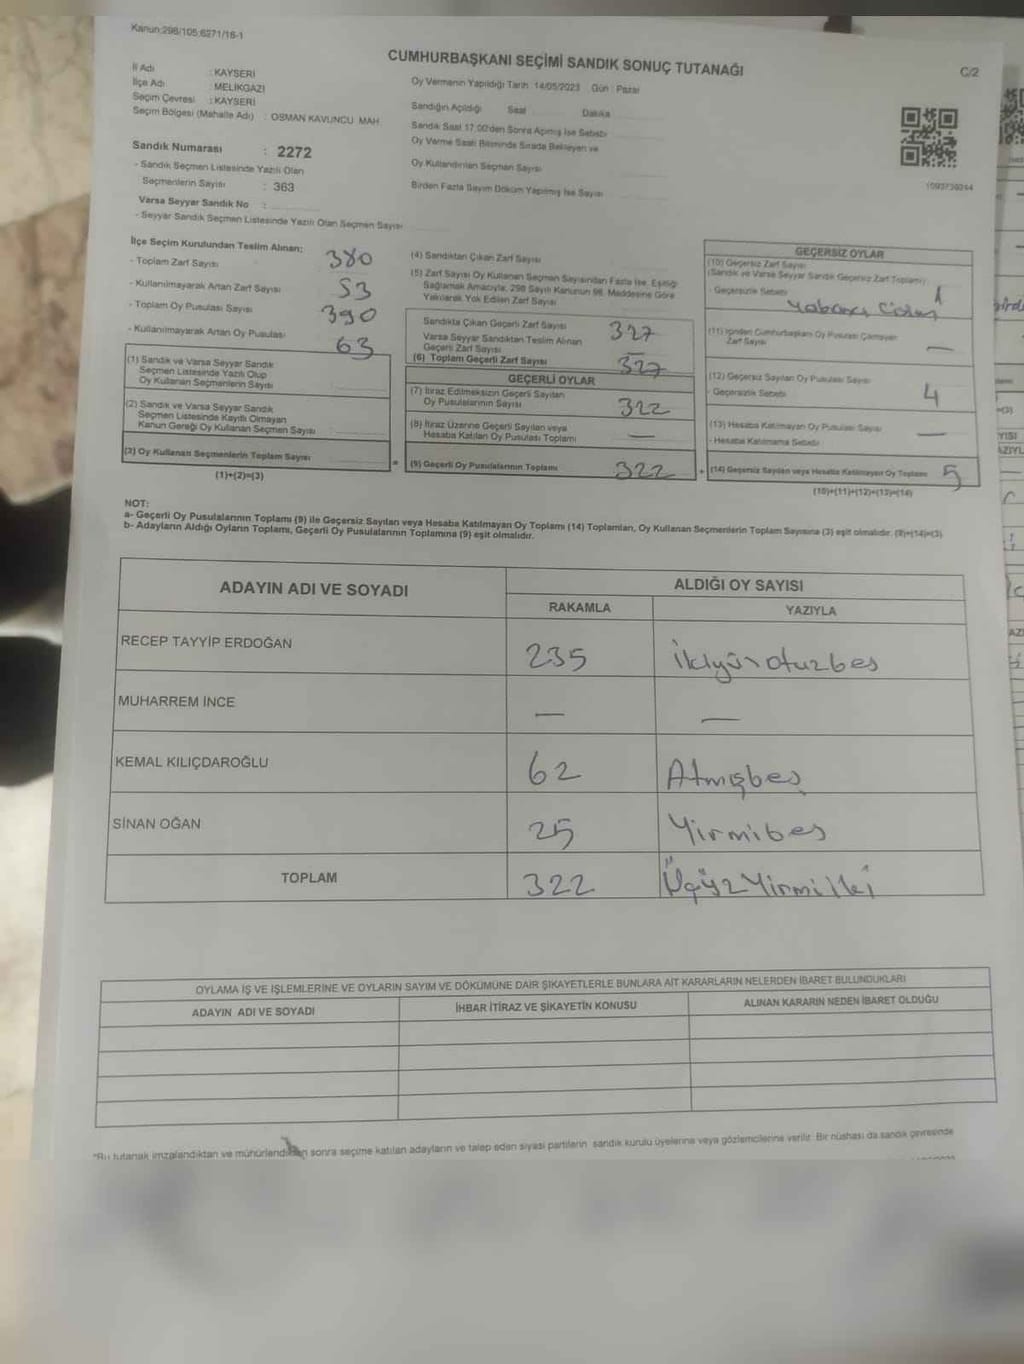 Kanun:298/105;6271/16-1
CUMHURBAŞKANI SEÇİMİ SANDIK SONUÇ TUTANAĞI
C/2
İl Adı : KAYSERİ
İlçe Adı : MELİKGAZİ
Seçim Çevresi : KAYSERİ
Seçim Bölgesi (Mahalle Adı) : OSMAN KAVUNCU MAH.
Sandık Numarası : 2272
- Sandık Seçmen Listesinde Yazılı Olan
Seçmenlerin Sayısı : 363
Varsa Seyyar Sandık No :
- Seyyar Sandık Seçmen Listesinde Yazılı Olan Seçmen Sayısı
Oy Vermenin Yapıldığı Tarih 14/05/2023 Gün : Pazar
Sandığın Açıldığı Saat Dakika
Sandık Saat 17.00'den Sonra Açılmış İse Sebebi
Oy Verme Saati Bitiminde Sırada Bekleyen ve
Oy Kullandırılan Seçmen Sayısı
Birden Fazla Sayım Döküm Yapılmış İse Sayısı
İlçe Seçim Kurulundan Teslim Alınan;
- Toplam Zarf Sayısı 380
- Kullanılmayarak Artan Zarf Sayısı 53
- Toplam Oy Pusulası Sayısı 390
- Kullanılmayarak Artan Oy Pusulası 63
(1) Sandık ve Varsa Seyyar Sandık
Seçmen Listesinde Yazılı Olup
Oy Kullanan Seçmenlerin Sayısı
(2) Sandık ve Varsa Seyyar Sandık
Seçmen Listesinde Kayıtlı Olmayan
Kanun Gereği Oy Kullanan Seçmen Sayısı
(3) Oy Kullanan Seçmenlerin Toplam Sayısı
(1)+(2)=(3)
(4) Sandıktan Çıkan Zarf Sayısı
(5) Zarf Sayısı Oy Kullanan Seçmen Sayısından Fazla İse, Eşitliği
Sağlamak Amacıyla, 298 Sayılı Kanunun 98. Maddesine Göre
Yakılarak Yok Edilen Zarf Sayısı
Sandıkta Çıkan Geçerli Zarf Sayısı 327
Varsa Seyyar Sandıktan Teslim Alınan
Geçerli Zarf Sayısı —
(6) Toplam Geçerli Zarf Sayısı 327
GEÇERLİ OYLAR
(7) İtiraz Edilmeksizin Geçerli Sayılan
Oy Pusulalarının Sayısı 322
(8) İtiraz Üzerine Geçerli Sayılan veya
Hesaba Katılan Oy Pusulası Toplamı —
(9) Geçerli Oy Pusulalarının Toplamı 322
GEÇERSİZ OYLAR
(10) Geçersiz Zarf Sayısı
(Sandık ve Varsa Seyyar Sandık Geçersiz Zarf Toplamı)
- Geçersizlik Sebebi 1
Yabancı Cisim
(11) İçinden Cumhurbaşkanı Oy Pusulası Çıkmayan
Zarf Sayısı —
(12) Geçersiz Sayılan Oy Pusulası Sayısı 4
- Geçersizlik Sebebi
(13) Hesaba Katılmayan Oy Pusulası Sayısı —
- Hesaba Katılmama Sebebi
+ (14) Geçersiz Sayılan veya Hesaba Katılmayan Oy Toplamı 5
(10)+(11)+(12)+(13)=(14)
NOT:
a- Geçerli Oy Pusulalarının Toplamı (9) ile Geçersiz Sayılan veya Hesaba Katılmayan Oy Toplamı (14) Toplamları, Oy Kullanan Seçmenlerin Toplam Sayısına (3) eşit olmalıdır. (9)+(14)=(3)
b- Adayların Aldığı Oyların Toplamı, Geçerli Oy Pusulalarının Toplamına (9) eşit olmalıdır.
ADAYIN ADI VE SOYADI ALDIĞI OY SAYISI
RAKAMLA YAZIYLA
RECEP TAYYİP ERDOĞAN 235 İkiyüzotuzbeş
MUHARREM İNCE — —
KEMAL KILIÇDAROĞLU 62 Atmışbeş
SİNAN OĞAN 25 Yirmibeş
TOPLAM 322 ÜçyüzYirmiİki
OYLAMA İŞ VE İŞLEMLERİNE VE OYLARIN SAYIM VE DÖKÜMÜNE DAİR ŞİKAYETLERLE BUNLARA AİT KARARLARIN NELERDEN İBARET BULUNDUKLARI
ADAYIN ADI VE SOYADI İHBAR İTİRAZ VE ŞİKAYETİN KONUSU ALINAN KARARIN NEDEN İBARET OLDUĞU
*Bu tutanak imzalandıktan ve mühürlendikten sonra seçime katılan adayların ve talep eden siyasi partilerin sandık kurulu üyelerine veya gözlemcilerine verilir. Bir nüshası da sandık çevresinde